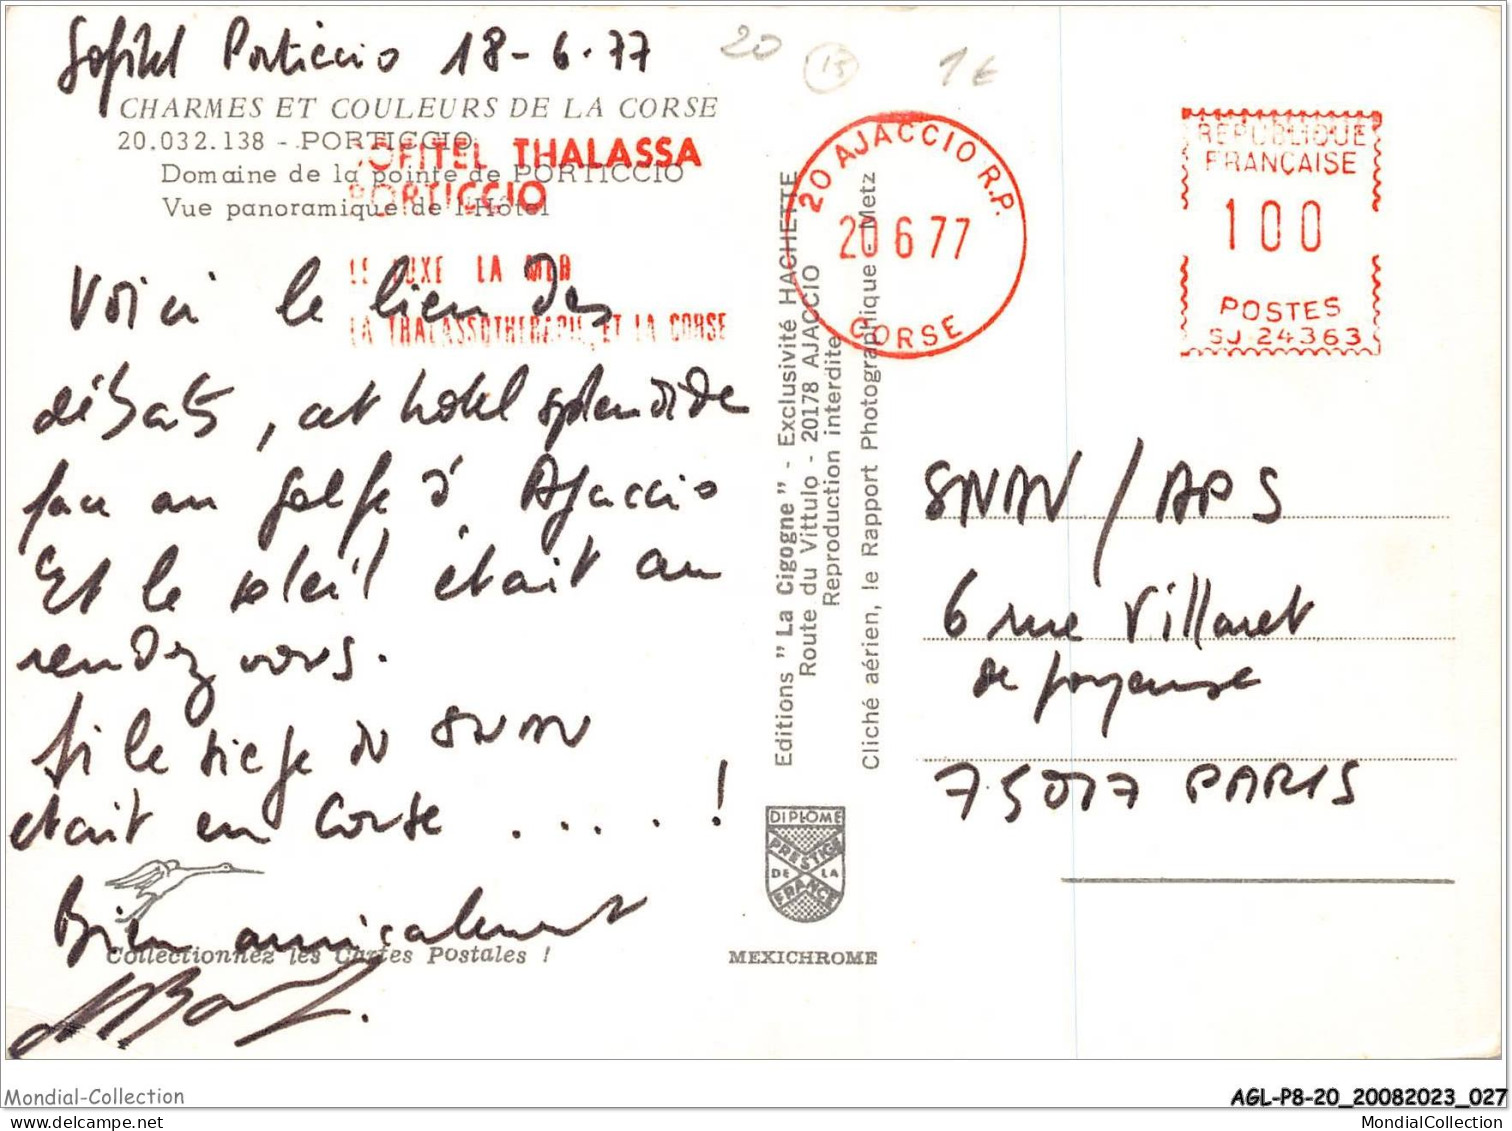 Sofitel Porticcio 18-6-77
20
15
1€
CHARMES ET COULEURS DE LA CORSE
20.032.138 - PORTICCIO
Domaine de la pointe de PORTICCIO
Vue panoramique de l'Hôtel
SOFITEL THALASSA
PORTICCIO
LE LUXE LA MER
LA THALASSOTHERAPIE ET LA CORSE
Voici le lieu des
débats, cet hotel splendide
face au golfe d'Ajaccio
Et le soleil était au
rendez vous.
Si le siege du SNMV
etait en Corse .....!
Bien amicalement
Collectionnez les Cartes Postales !
Editions "La Cigogne" - Exclusivité HACHETTE
Route du Vittulo - 20178 AJACCIO
Reproduction interdite
Cliché aérien, le Rapport Photographique - Metz
DIPLOME
PRESTIGE
DE LA
FRANCE
MEXICHROME
20 AJACCIO R.P.
20 6 77
CORSE
REPUBLIQUE
FRANÇAISE
100
POSTES
SJ 24363
SNMV / APS
6 rue Villaret
de Joyeuse
75017 PARIS
Mondial-Collection
https://www.mondialcollection.com
AGL-P8-20_20082023_027
MondialCollection.com